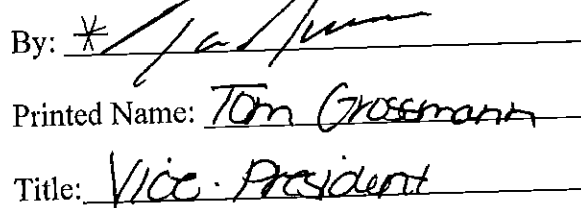 By: *
Printed Name: Tom Grossmann
Title: Vice-President